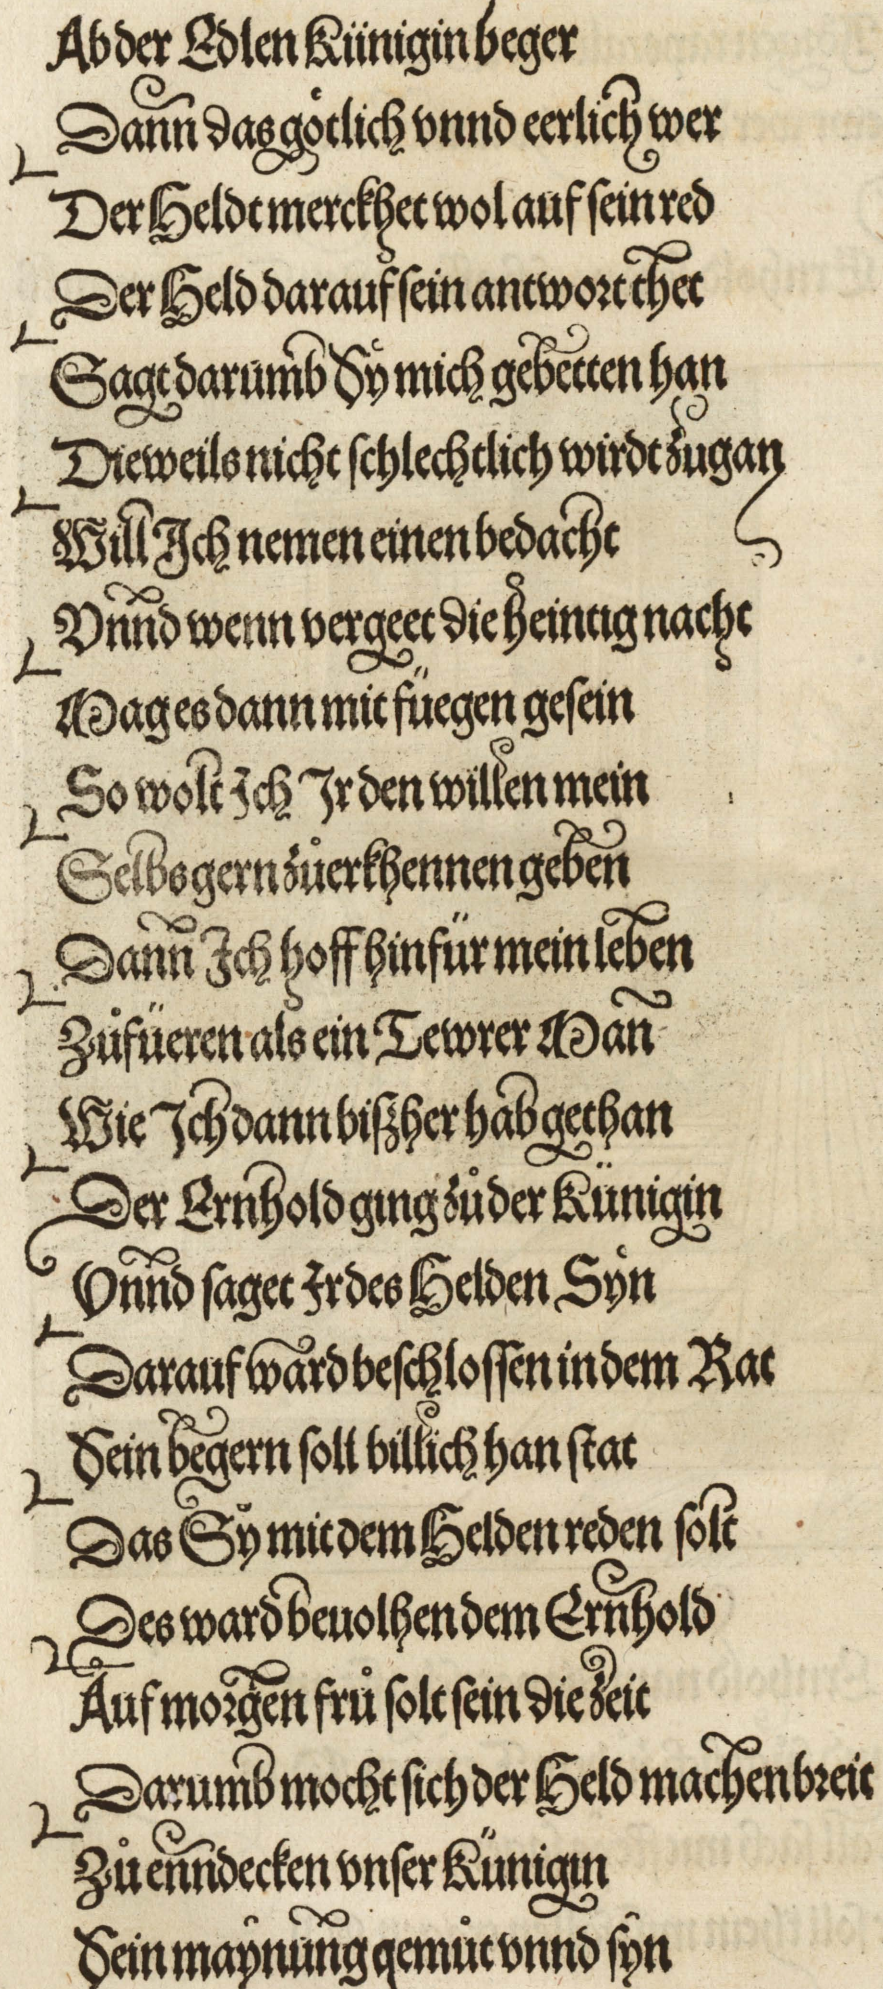 Ab der Edlen Künigin beger
Dann das götlich vnnd eerlich wer
Der Heldt merckhet wol auf sein red
Der Held darauf sein antwort thet
Sagt darumb Sy mich gebetten han
Dieweils nicht schlechtlich wirdt zugan
Will Ich nemen einen bedacht
Vnnd wenn vergeet die heintig nacht
Mag es dann mit füegen gesein
So wolt Ich Ir den willen mein
Selbs gern zůerkhennen geben
Dann Ich hoff hinfür mein leben
Zůfüeren als ein Tewrer Man
Wie Ich dann biszher hab gethan
Der Ernhold ging zů der Künigin
Vnnd saget Ir des Helden Syn
Darauf ward beschlossen in dem Rat
Sein begern soll billich han stat
Das Sy mit dem Helden reden solt
Des ward beuolhen dem Ernhold
Auf morgen frů solt sein die zeit
Darumb mocht sich der Held machen breit
Zů enndecken vnser Künigin
Sein maynung gemůt vnnd syn